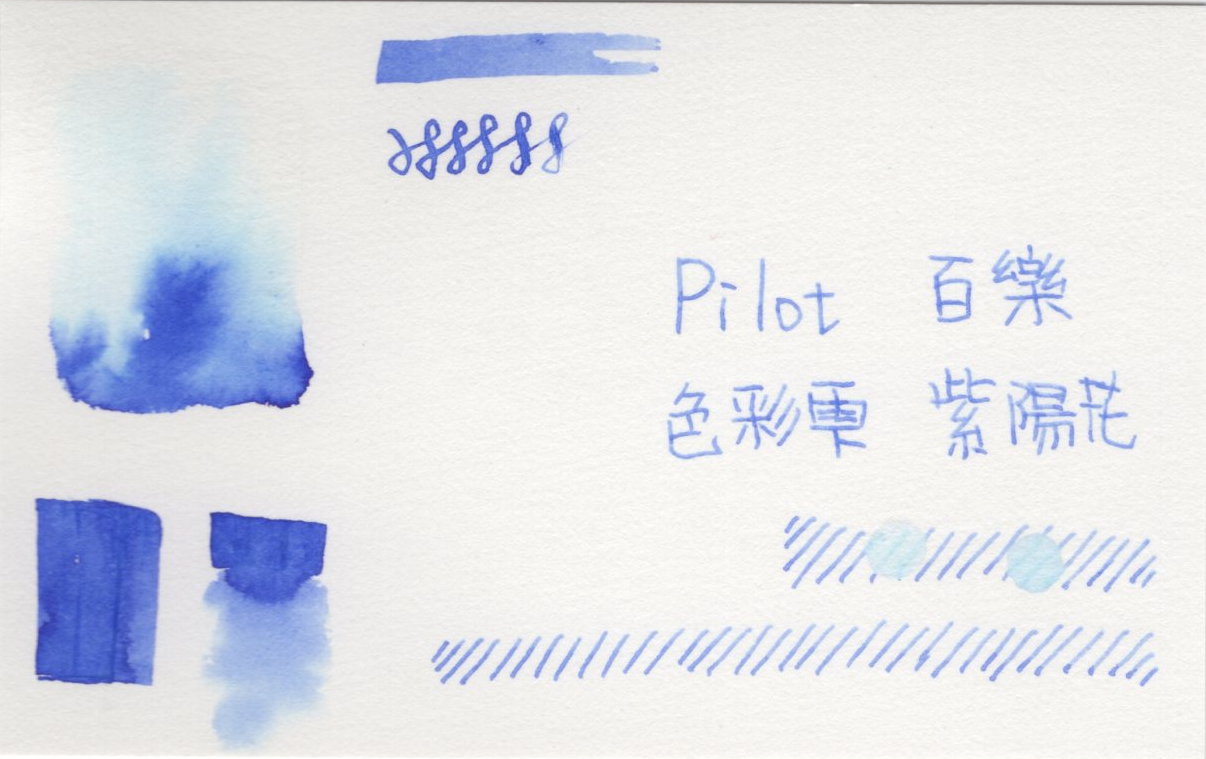 Pilot 百樂
色彩雫 紫陽花